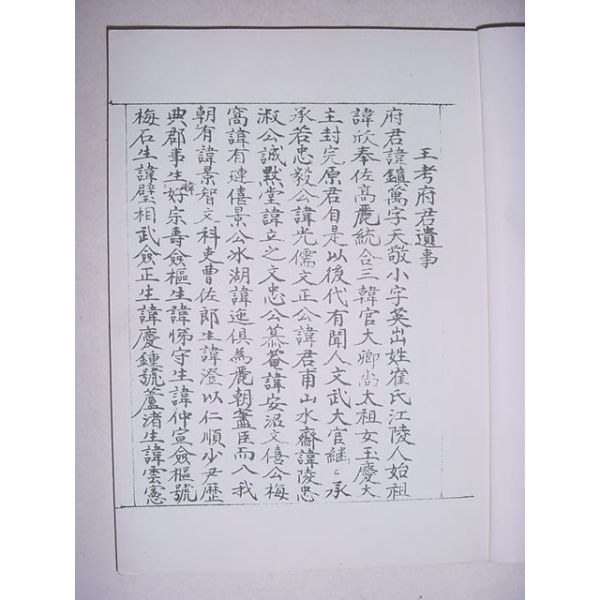 王考府君遺事
府君諱鎮萬字天敬小字英出姓崔氏江陵人始祖
諱欣奉佐高麗統合三韓官大卿尙太祖女玉慶大
主封完原君自是以後代有聞人文武大官繼〻承
承若忠毅公諱光儒文正公諱君甫山水齋諱陵忠
淑公誠默堂諱立之文忠公慕菴諱安沼文僖公梅
窩諱有漣僖景公氷湖諱迤俱爲麗朝藎臣而入我
朝有諱景智文科吏曹佐郎生諱澄以仁順少尹歷
典郡事生諱好宗壽僉樞生諱悌守生諱仲宣僉樞號
梅石生諱璧相武僉正生諱慶鍾號蘆渚生諱雲憲